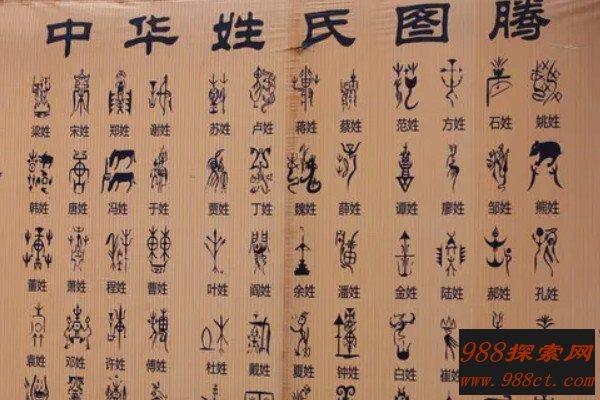 中华姓氏图腾
梁姓 宋姓 郑姓 谢姓 苏姓 卢姓 蒋姓 蔡姓 范姓 方姓 石姓 姚姓
韩姓 唐姓 冯姓 于姓 贾姓 丁姓 魏姓 薛姓 谭姓 廖姓 邹姓 熊姓
董姓 萧姓 程姓 曹姓 叶姓 阎姓 余姓 潘姓 金姓 陆姓 郝姓 孔姓
袁姓 邓姓 许姓 傅姓 杜姓 戴姓 夏姓 钟姓 白姓 崔姓
988探索网
www.988ct.com